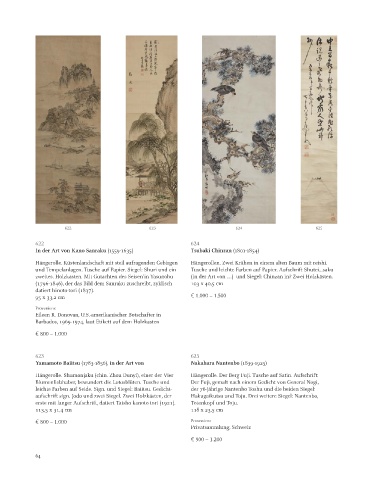 622
623
624
625
622
In der Art von Kano Sanraku (1559-1635)
Hängerolle. Küstenlandschaft mit steil aufragenden Gebirgen
und Tempelanlagen. Tusche auf Papier. Siegel: Shuri und ein
zweites. Holzkasten. Mit Gutachten des
das Bild dem Sanraku zuschreibt, zyklisch
datiert hinoto tori (1837).
95 x 33,2 cm
Provenienz
Eileen R. Donovan, U.S.-amerikanischer Botschafter in
Barbados, 1969-1974, laut Etikett auf dem Holzkasten
€ 800 – 1.000
623
Yamamoto Baiitsu (1783-1856), in der Art von
Hängerolle. Shumoujiku (chin. Zhou Dunyi), einer der Vier
Blumenliebhaber, bewundert die Lotusblüten. Tusche und
leichte Farben auf Seide. Sign. und Siegel: Baiitsu. Gedicht-
aufschrift sign. und zwei Siegel. Zwei Holzkästen, der
erste mit langer Aufschrift, datiert Taisho kanoto tori (1921).
113,5 x 31,4 cm
€ 800 – 1.000
624
Tsubaki Chinzan (1801-1854)
Hängerollen. Zwei Krähen in einem alten Baum mit reishi.
Tusche und leichte Farben auf Papier. Aufschrift
(in der Art von ...) und Siegel: Chinzan Zwei Holzkästen.
x 40,5 cm
€ 1.000 – 1.500
625
Nakahara Nantenbo (1839-1925)
Hängerolle. Der Berg Fuji. Tusche auf Satin. Aufschrift
Der Fuji, gemalt nach einem Gedicht von General Nogi,
der 76-jährige Nantenbo Toshu und die beiden Siegel:
Hakugaikutsu und Toju. Drei weitere Siegel: Nantenbo,
Totenkopf und Toju.
x 23,5 cm
Provenienz
Privatsammlung, Schweiz
€ 900 – 1.200
64